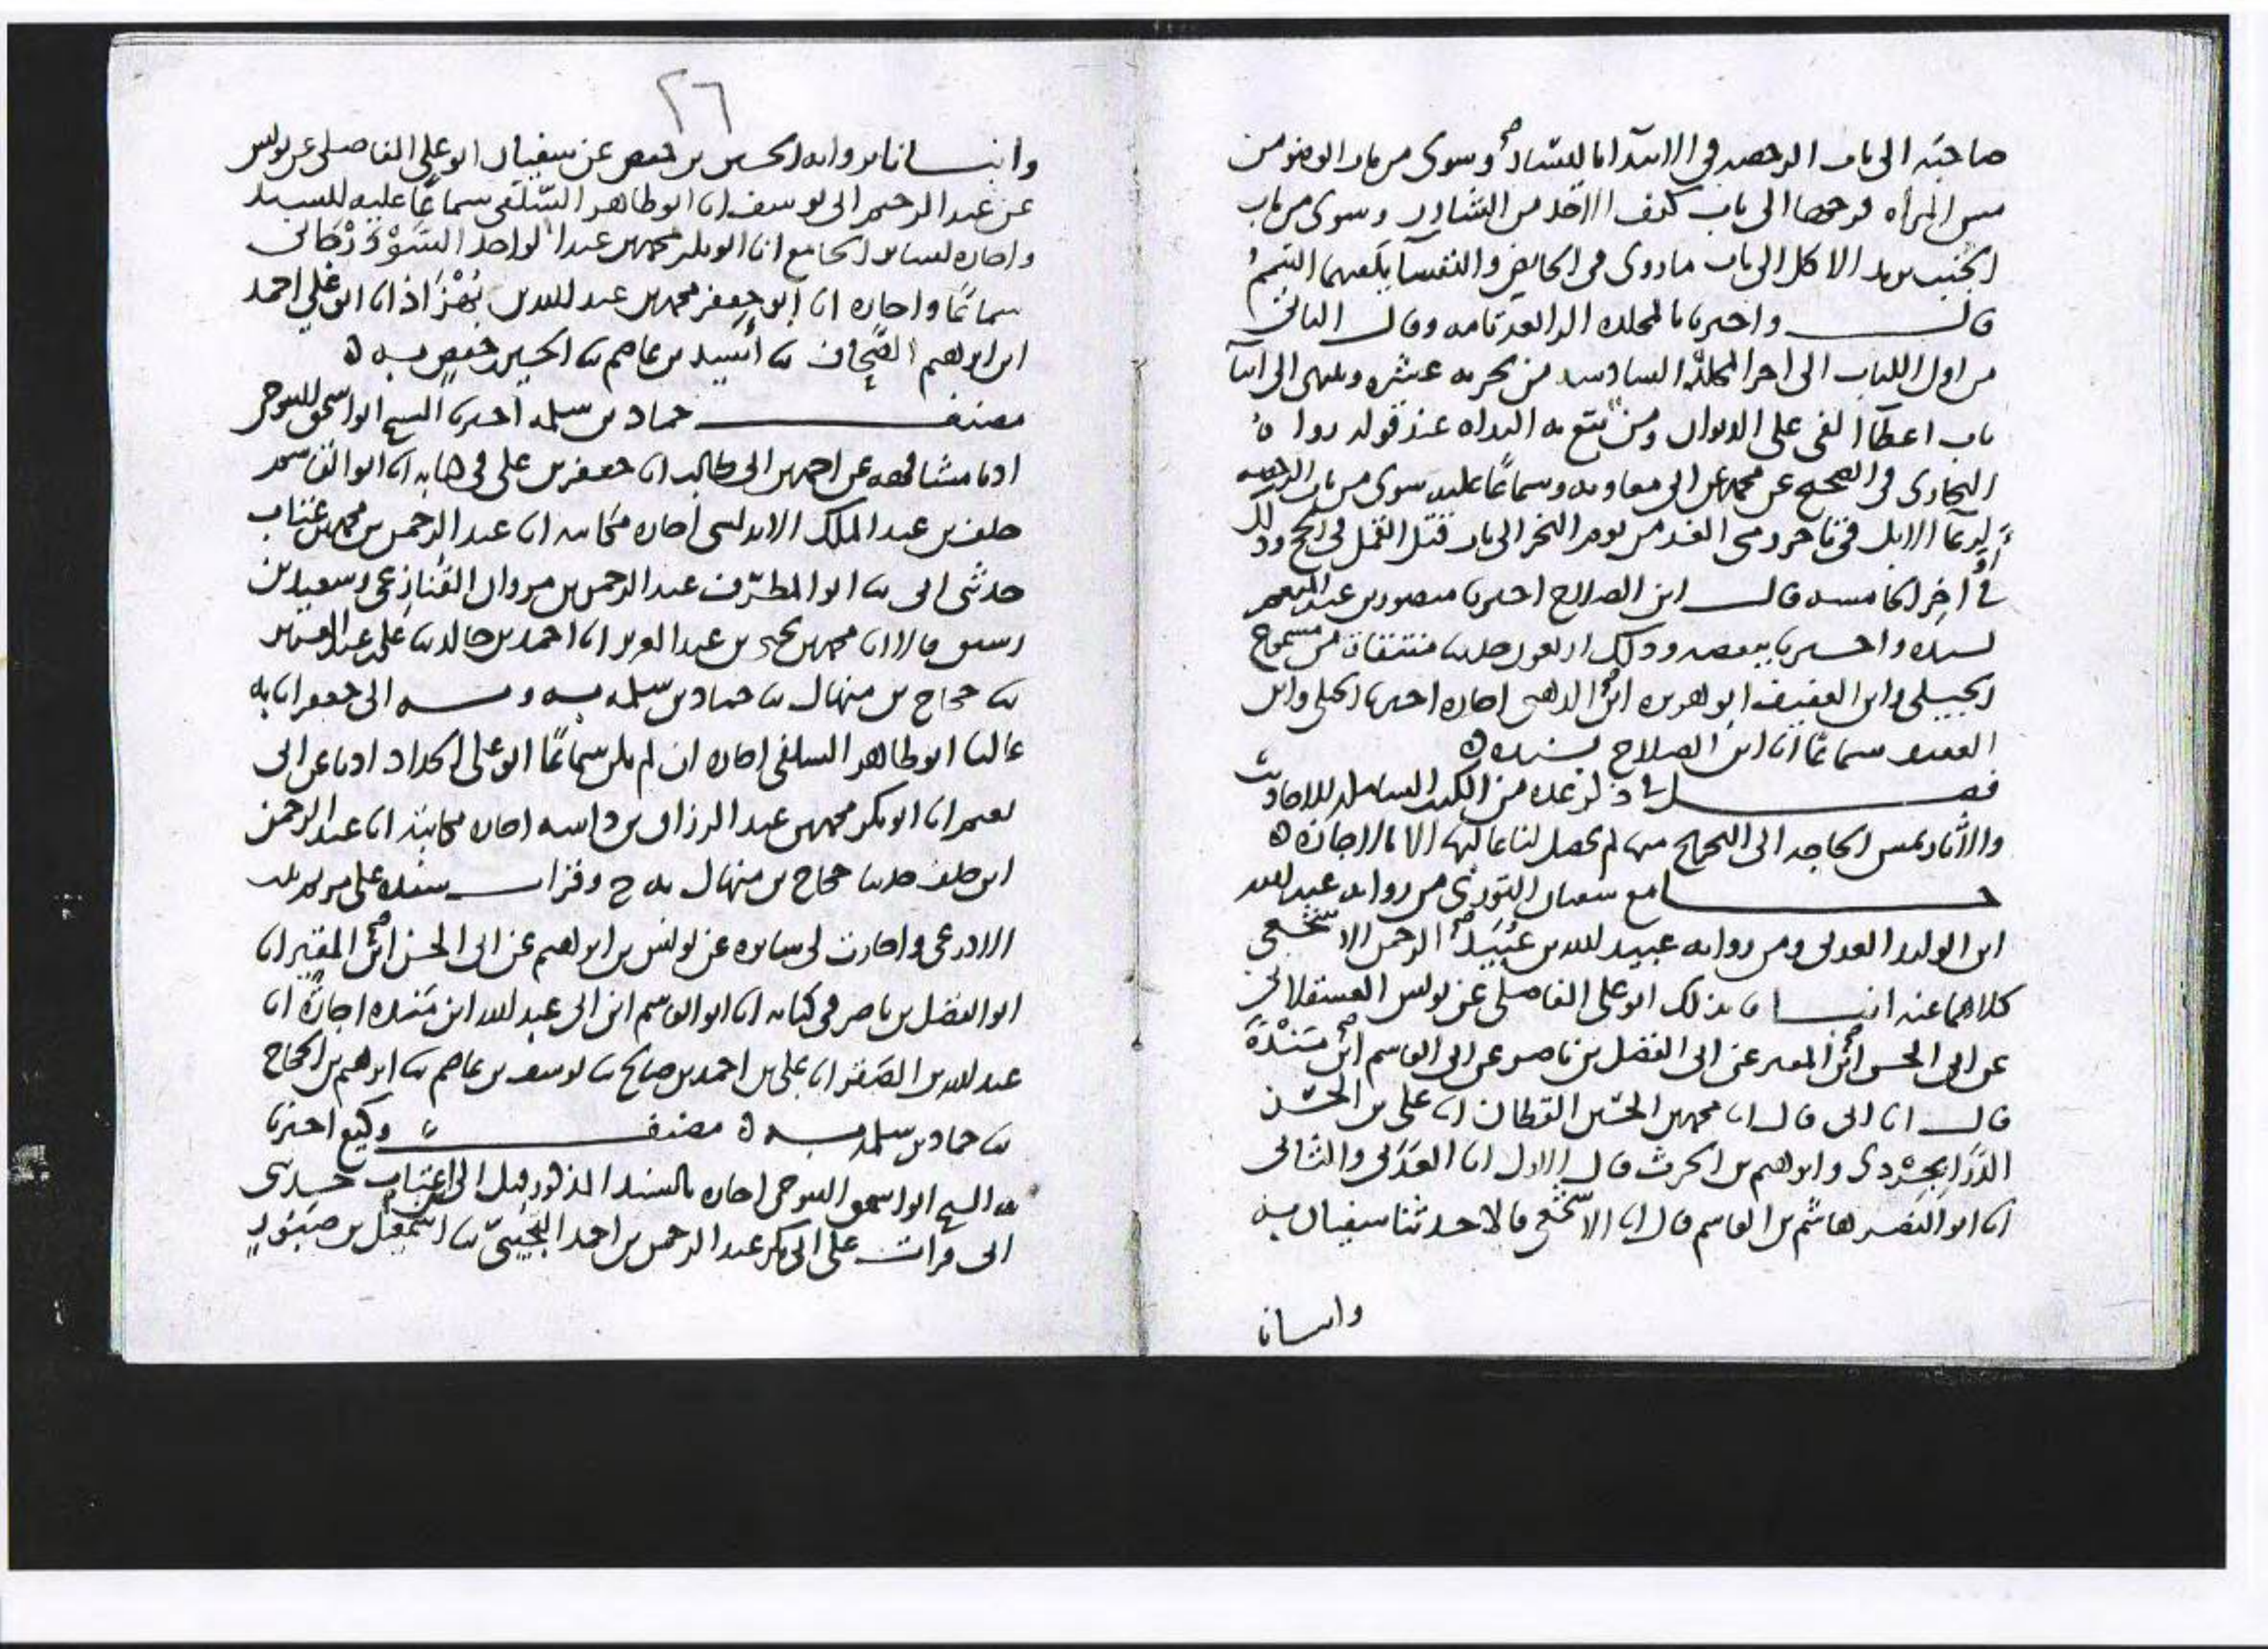 صاحبته الى باب الرخصة في الابتدا باليسار وسوى من باب الوضو من
مس المراه فرجها الى باب كيف الاخذ من الشارب وسوى من باب
الجنب يريد الاكل الى باب ما روى في الحايض والنفسا يكفيهما التيمم
قال واخبرنا بالمجلده الرابعة تامه وقال الثاني
من اول الكتاب الى اخر المجلدة السادسه من تجزيه عشره وينتهى الى اثنا
باب اعطا الفى على الديوان ومن تقع به البداه عند قوله رواه
البخارى في الصحيح عن محمد عن ابى معاويه وسماعا عليه سوى من باب الرخصه
لرعا الابل في تاخر رمى الغد من يوم النحر الى باب قتل القمل في الحج وذلك
في اخر الخامسه قال ابن الصلاح اخبرنا منصور بن عبد المنعم
بسنده واخبرنا ببعضه وذلك اربعون حديثا منتقاة من مسموع
ابو هريره ابن الذهبى اجازه اخبرنا
سماعا انا ابن الصلاح بسنده
فصل في ذكر عده من الكتب الشامله للاحاديث
والاثار تمس الحاجه الى التخريج منها لم يحصل لنا عاليها الا بالاجازه
جامع سفيان الثورى من روايه عبد الله
ابن الوليد العدنى ومن روايه عبيد الله بن عبيد الرحمن الاشجعى
كلاهما عنه انبانا بذلك ابو على الفاضلى عن يونس العسقلانى
عن ابى الحسن ابن المقير عن ابى الفضل بن ناصر عن ابى القاسم ابن منده
قال انا ابى قال انا محمد بن الحسين القطان انا على بن الحسن
الدرابجردى وابراهيم بن الحرث قال الاول انا العدنى والثانى
انا ابو النضر هاشم بن القاسم قال انا الاشجعى قالا حدثنا سفيان به
وانبانا
٢٦
وانبانا بروايه الحسين بن حفص عن سفيان ابو على الفاضلى عن يونس
عن عبد الرحيم ابى يوسف انا ابو طاهر السلفى سماعا عليه
واجازه لساير الجامع انا ابو بكر محمد بن عبد الواحد
سماعا واجازه انا ابو جعفر محمد بن عبد الله بن بهزاذ انا ابو على احمد
ابن ابراهيم الصحاف ثنا اسيد بن عاصم ثنا الحسين بن حفص به
مصنف حماد بن سلمه اخبرنا الشيخ ابو اسحق التنوخى
اذنا مشافهه عن احمد بن ابى طالب انا جعفر بن على في كتابه انا ابو القاسم
خلف بن عبد الملك الاندلسى اجازه مكاتبه انا عبد الرحمن بن محمد بن عتاب
حدثنى ابى ثنا ابو المطرف عبد الرحمن بن مروان القنازعى وسعيد بن
قالا انا محمد بن يحيى بن عبد العزيز انا احمد بن خالد ثنا على بن عبد العزيز
ثنا حجاج بن منهال ثنا حماد بن سلمه به وبه الى جعفر انا به
عاليا ابو طاهر السلفى اجازه ان لم يكن سماعا ابو على الحداد اذنا عن ابى
نعيم انا ابو بكر محمد بن عبد الرزاق بن داسه اجازه مكاتبة انا عبد الرحمن
ابن خلف حدثنا حجاج بن منهال به ح وقرات سنده على مريم بنت
الاذرعى واجازت لى سايره عن يونس بن ابراهيم عن ابى الحسن ابن المقير انا
ابو الفضل بن ناصر في كتابه انا ابو القاسم ابن ابى عبد الله ابن منده اجازة انا
عبد الله بن الصقر انا على بن احمد بن صالح ثنا يوسف بن عاصم ثنا ابراهيم بن الحجاج
ثنا حماد بن سلمه به مصنف وكيع اخبرنا
به الشيخ ابو اسحق التنوخى اجازه بالسند المذكور قبل الى ابن عتاب حدثنى
ابى قرات على ابى بكر عبد الرحمن بن احمد التجيبى ثنا اسمعيل بن